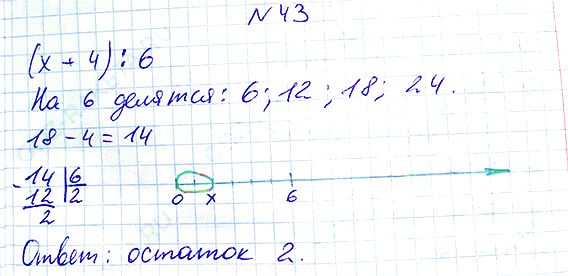 № 43
(x + 4) : 6
На 6 делятся: 6; 12; 18; 24.
18 - 4 = 14
- 14 | 6
12 | 2
2
0 x 6
Ответ: остаток 2.